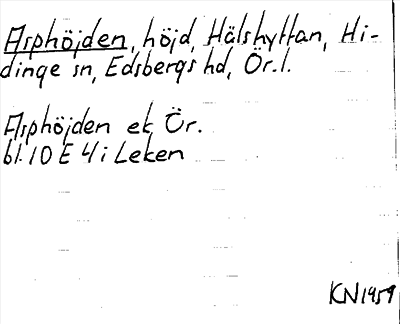 Asphöjden, höjd, Hälshyttan, Hi-
dinge sn, Edsbergs hd, Ör.l.
Asphöjden ek Ör.
bl. 10 E 4 i Leken
KN 1959